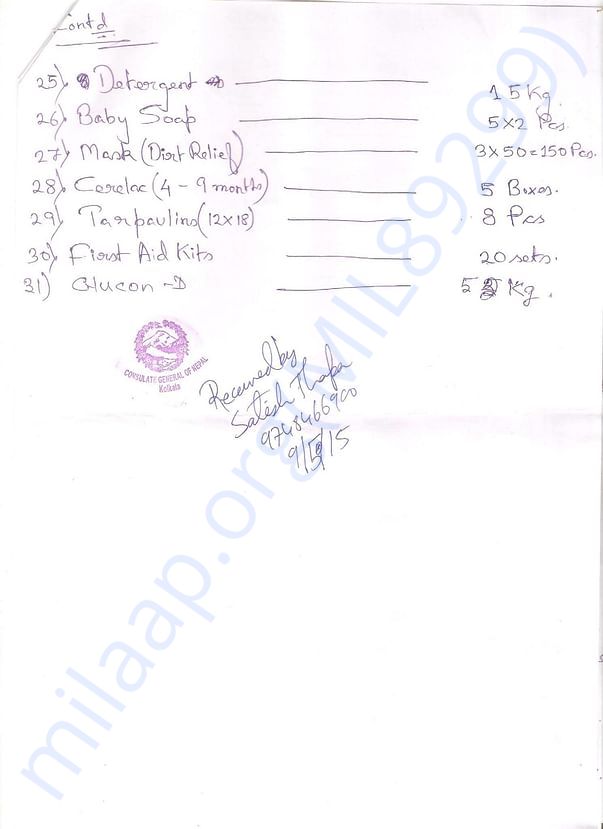 Contd
25) Detergent 15 Kg.
26) Baby Soap 5x2 Pcs.
27) Mask (Dirt Relief) 3x50=150 Pcs.
28) Cerelac (4 - 9 months) 5 Boxes.
29) Tarpaulins (12x18) 8 Pcs
30) First Aid Kits 20 sets.
31) Glucon - D 5 Kg.
CONSULATE GENERAL OF NEPAL
Kolkata
Received by
Satish Thapa
9748466900
9/5/15
milaap.org